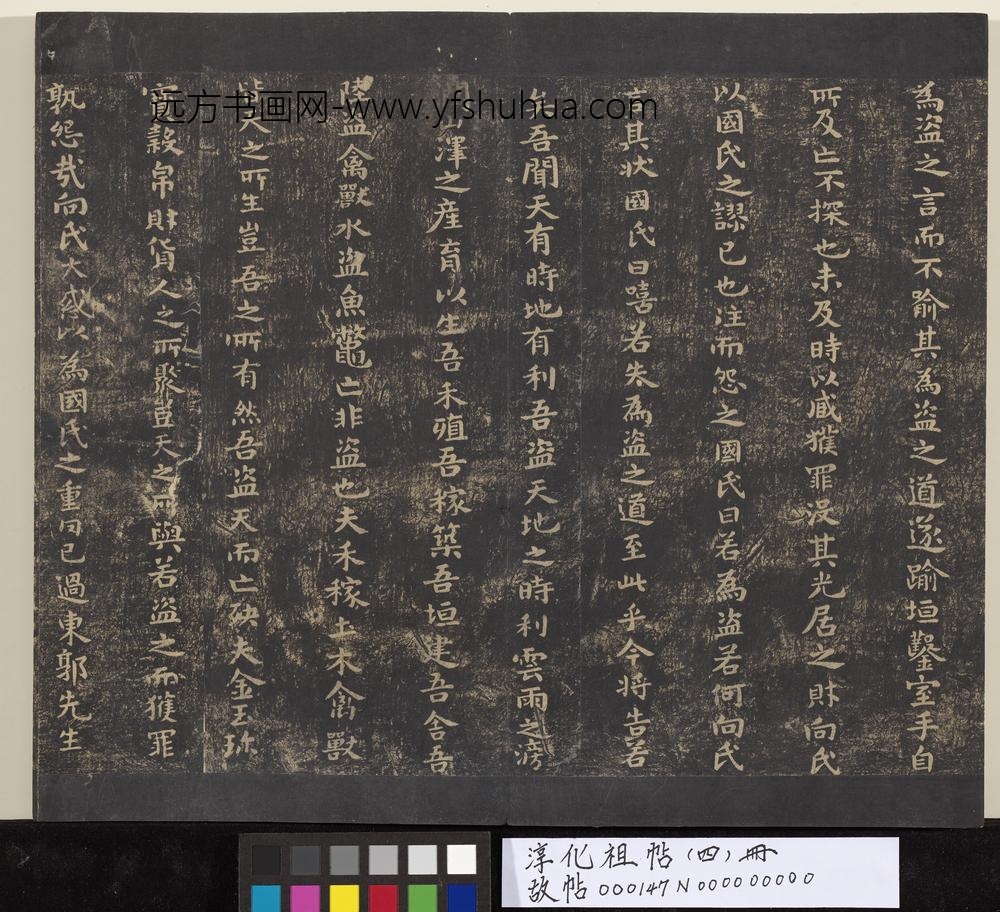 為盜之言而不喻其為盜之道遂踰垣鑿室手自
所及亡不探也未及時以臧獲罪沒其先居之財向氏
以國氏之謬已也往而怨之國氏曰若為盜若何向氏
言其狀國氏曰嘻若失為盜之道至此乎今將告若
矣吾聞天有時地有利吾盜天地之時利雲雨之滂
山澤之産育以生吾禾殖吾稼築吾垣建吾舍吾
陸盜禽獸水盜魚鼈亡非盜也夫禾稼土木禽獸
皆天之所生豈吾之所有然吾盜天而亡殃夫金玉珎
穀帛財貨人之所聚豈天之所與若盜之而獲罪
孰怨哉向氏大惑以為國氏之重罔已過東郭先生
远方书画网-www.yfshuhua.com
淳化祖帖（四）冊
故帖000147N000000000